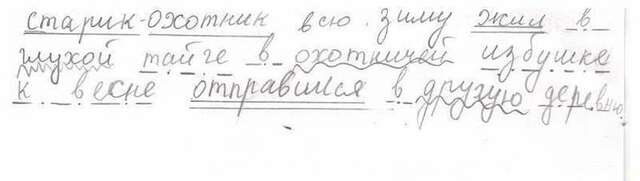 старик-охотник всю зиму жил в
глухой тайге в охотничей избушке
к весне отправился в другую деревню.